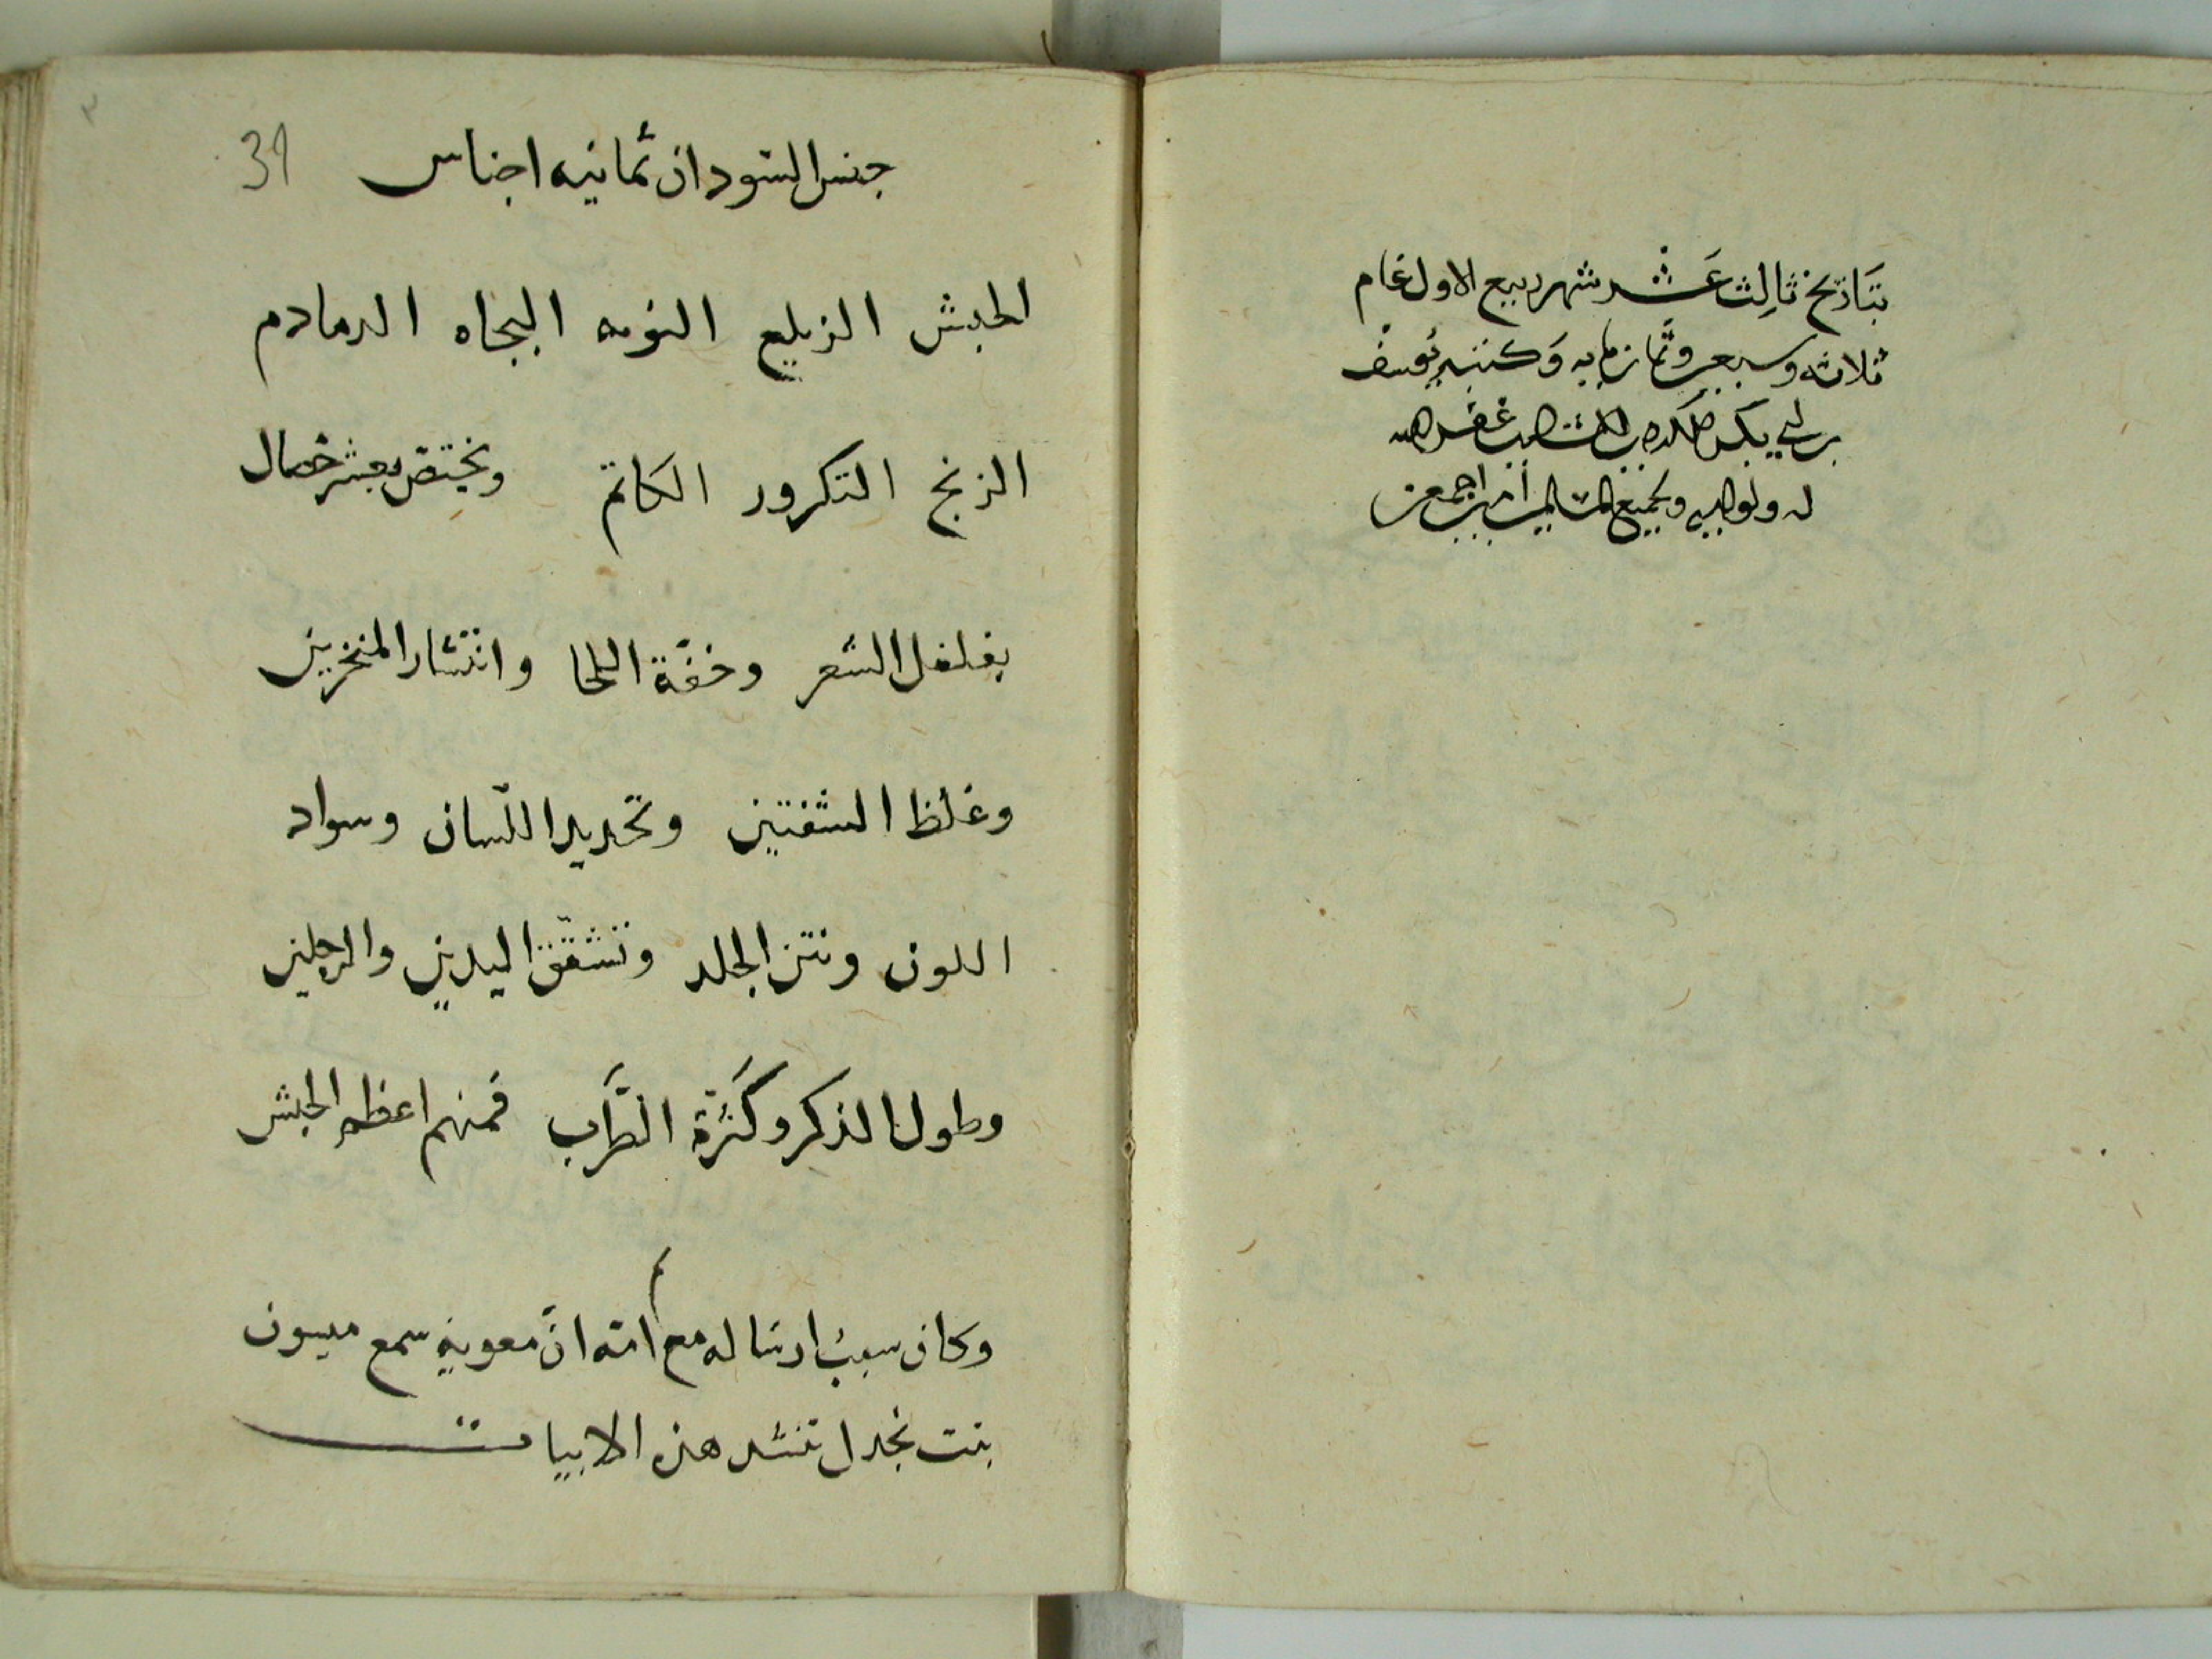 بتاريخ ثالث عشر شهر ربيع الاول عام
ثلاثه وسبعين وثمانمايه وكتبه يوسف
بن ابي بكر غفر الله
له ولوالديه ولجميع المسلمين امين اجمعين
39
جنس السودان ثمانيه اجناس
الحبش الزيلع النوبه البجاه الدمادم
الزنج التكرور الكاتم ويختص بعشر خصال
بفلفل الشعر وخفّة اللحا وانتشار المنخرين
وغلظ الشفتين وتحديد اللّسان وسواد
اللون ونتن الجلد وتشقّق اليدين والرجلين
وطول الذكر وكَثرة الطَّرب فمنهم اعظم الحبش
وكان سبب ارساله مع امّه انّ معوية سمع ميسون
بنت بجدل تنشد هذه الابيات